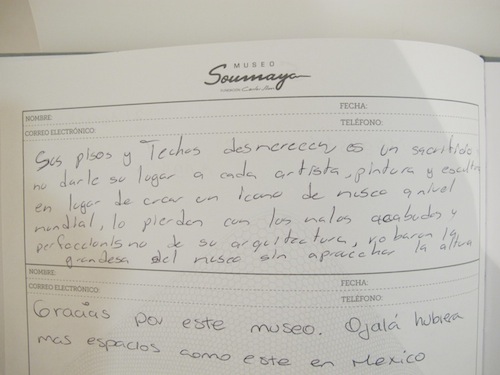 MUSEO
Soumaya
FUNDACIÓN Carlos Slim
NOMBRE:
FECHA:
CORREO ELECTRÓNICO:
TELÉFONO:
Sus pisos y Techos desmerecen es un sacrificio
no darle su lugar a cada artista, pintura y escultura
en lugar de crear un icono de museo a nivel
mundial, lo pierden con los malos acabados y
perfeccionismo de su arquitectura, robaron la
grandesa del museo sin aprovechar la altura
NOMBRE:
FECHA:
CORREO ELECTRÓNICO:
TELÉFONO:
Gracias por este museo. Ojalá hubiera
mas espacios como este en Mexico